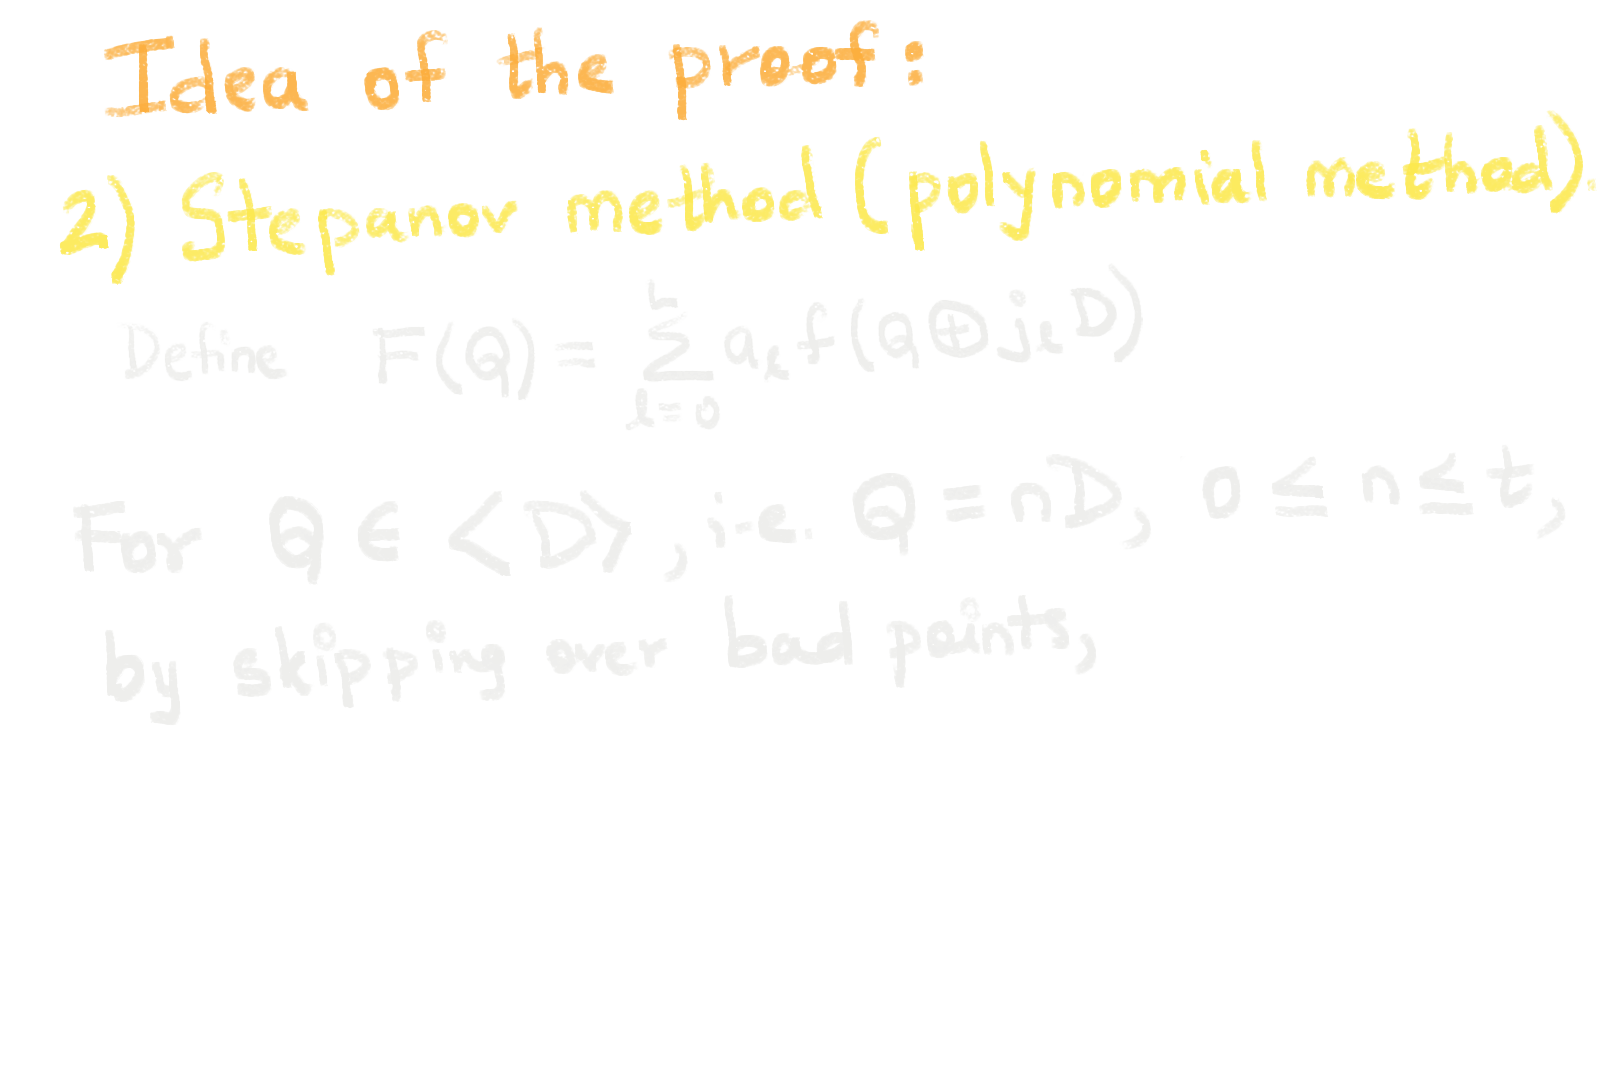 Idea of the proof:
2) Stepanov method (polynomial method).
Define F(Q) = \sum_{l=0}^{h} a_l f(Q ⊕ j_l D)
For Q ∈ <D>, i.e. Q = nD, 0 ≤ n ≤ t,
by skipping over bad points,